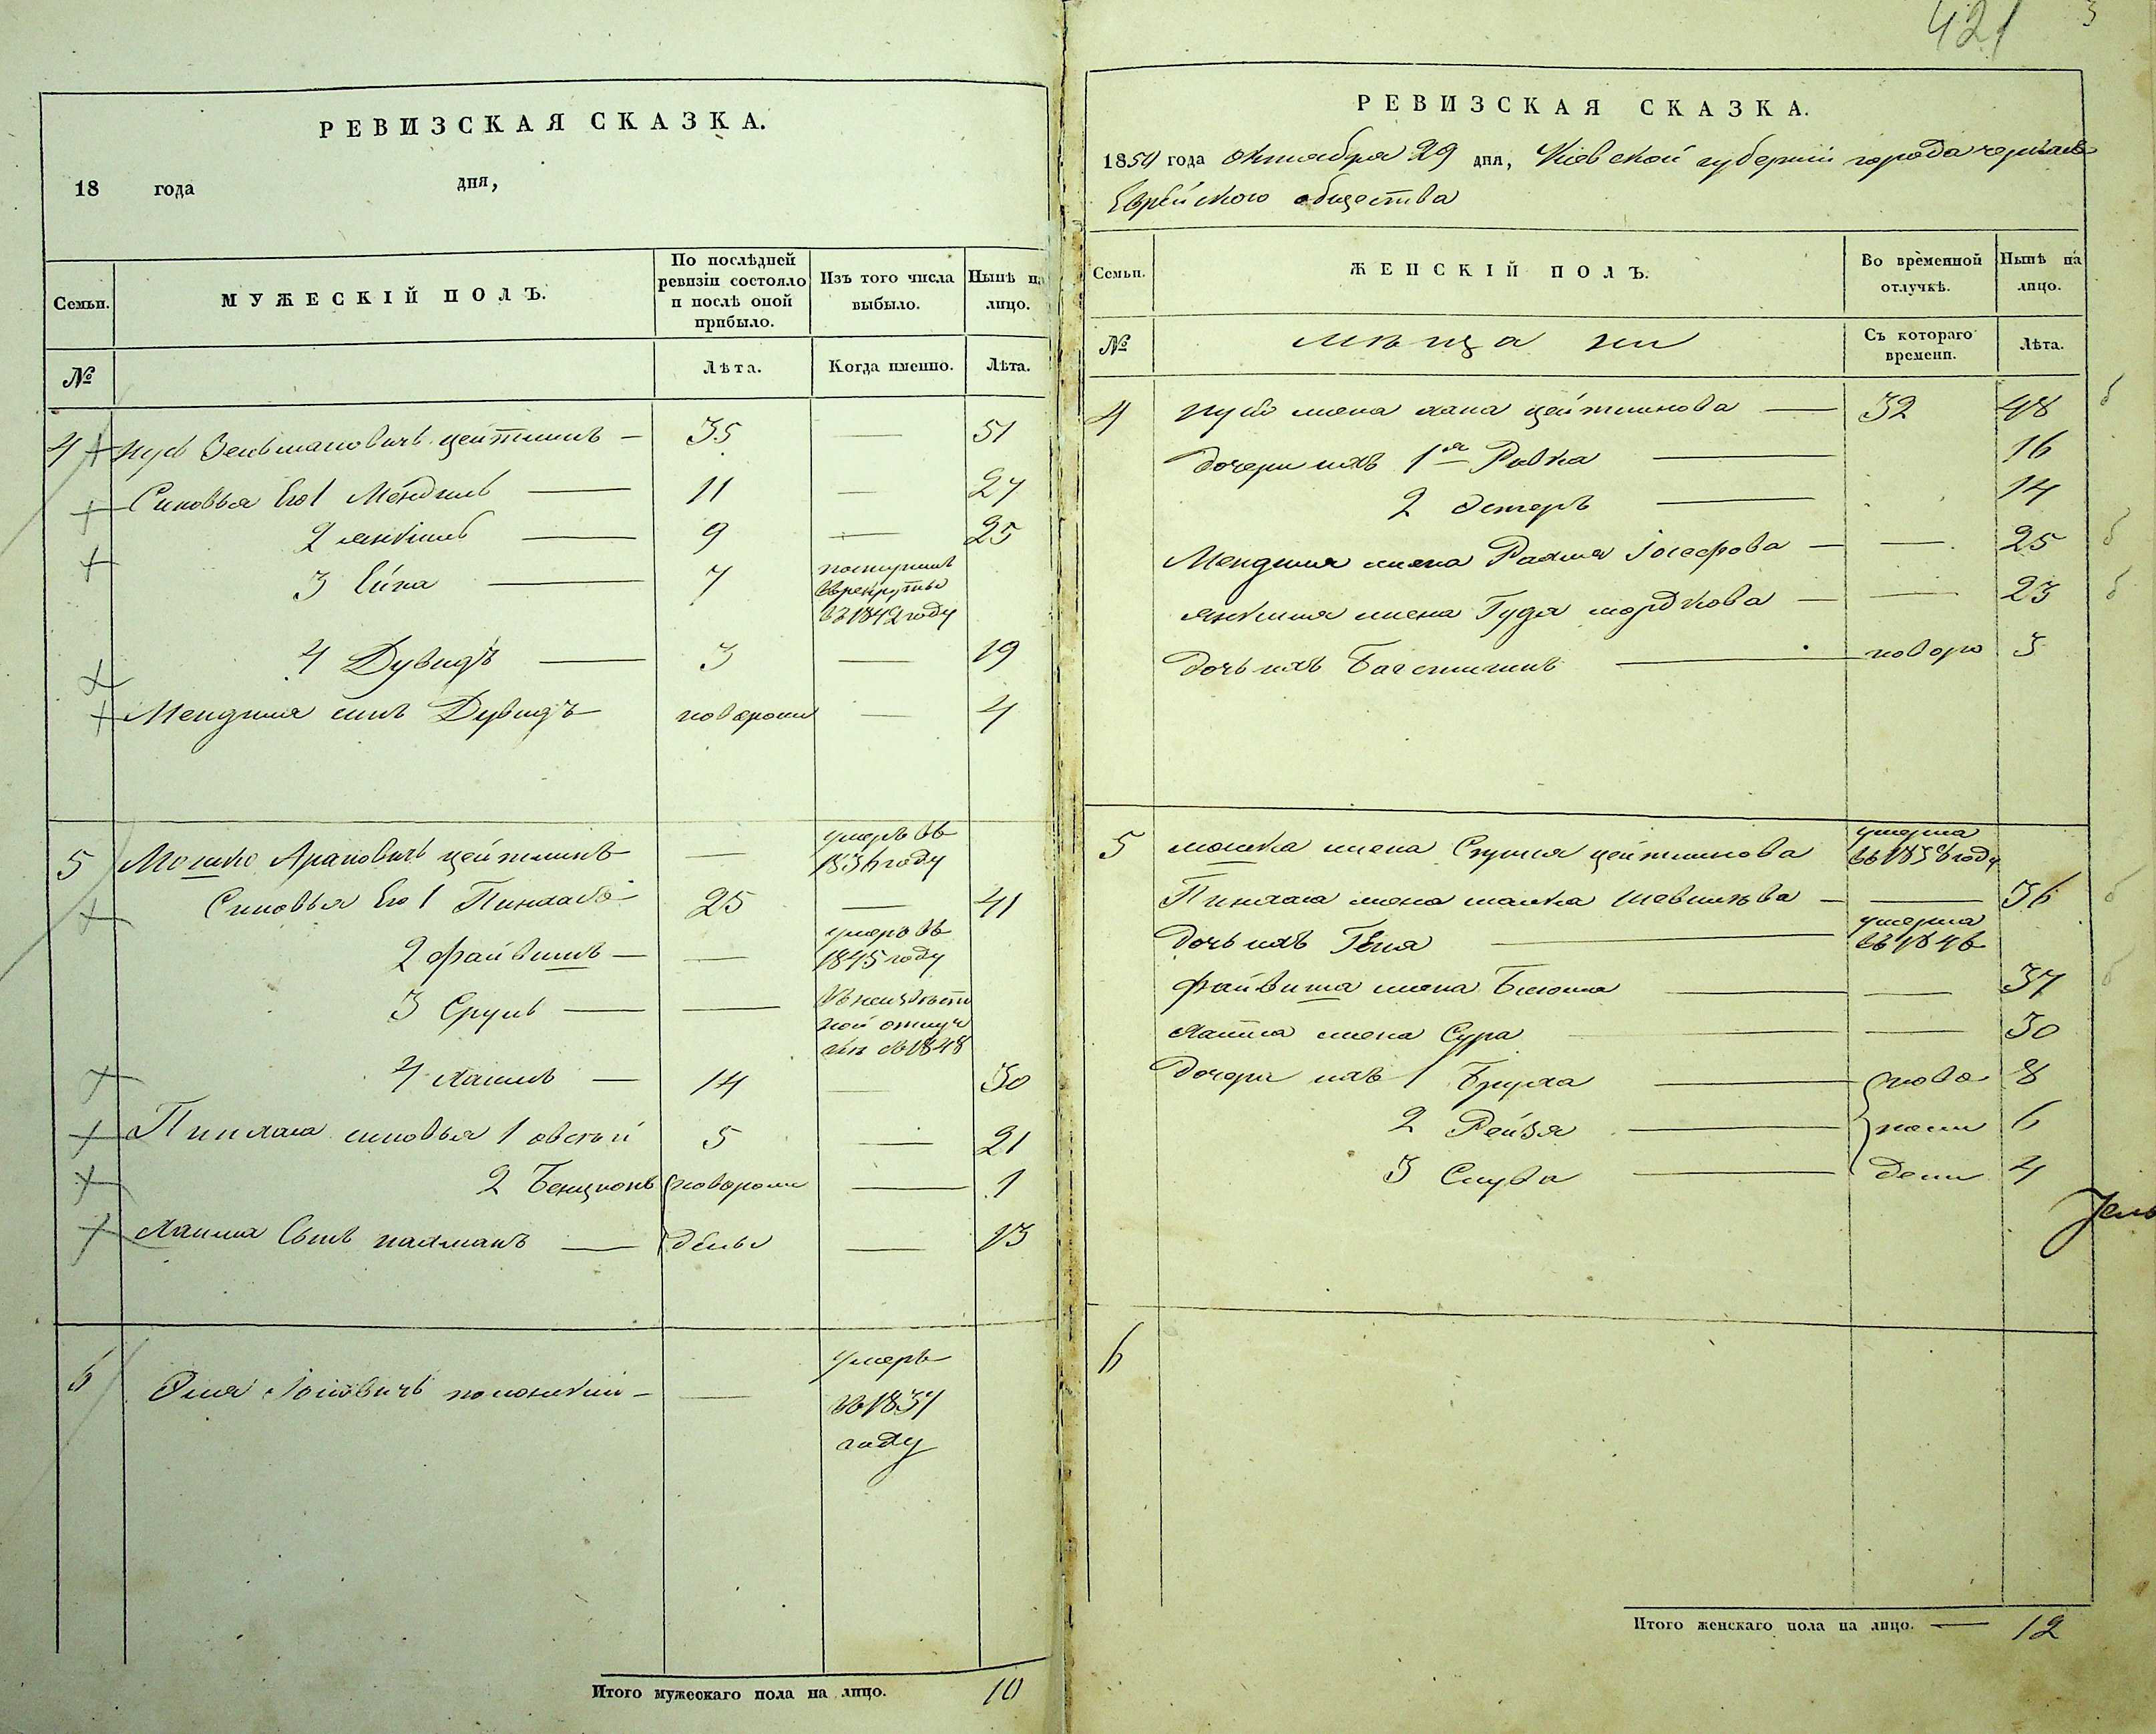 РЕВИЗСКАЯ СКАЗКА.
18 года дня,
Семьи. МУЖЕСКІЙ ПОЛЪ. По послѣдней ревизіи состояло и послѣ оной прибыло. Изъ того числа выбыло. Нынѣ на лицо.
№ Лѣта. Когда именно. Лѣта.
4 Зельмановичъ цейтлинъ — 35 — 51
Синовья Его 1 Мендиль — 11 — 27
2 Янкиль — 9 — 25
3 — 7 поступилъ
врекруты
въ 1842 году
4 Дувидъ — 3 — 19
Мендиля синъ Дувидъ новорож — 4
5 Мошко Ароновичъ цейтлинъ — умеръ въ
1836 году
Синовья Его 1 Пинхасъ 25 — 41
2 Файвишъ — — умеръ въ
1845 году
3 Сруль — — въ неизвѣст
ной отлуч
кѣ съ 1848
4 Хаимъ — 14 — 30
Пинхаса синовья 1 Овсѣй 5 — 21
2 Бенционъ новорож — 1
Хаима Сынъ Нахманъ — дены — 13
6 — умеръ
въ 1837
году
Итого мужескаго пола на лицо. 10
421 3
РЕВИЗСКАЯ СКАЗКА.
1850 года октября 29 дня, Кіевской губерніи города
Еврейского общества
Семьи. ЖЕНСКІЙ ПОЛЪ. Во временной отлучкѣ. Нынѣ на лицо.
№ мѣщане Съ котораго времени. Лѣта.
4 жена хана цейтлинова — 32 48
дочери ихъ 1я Ривка — 16
2 Эстеръ — 14
Мендиля жена Рахля Іосефова — — 25
Янкиля жена Гудя мордкова — — 23
дочь ихъ — новоро 3
5 мошка жена Сприня цейтлинова умерла
въ 1838 году
Пинхаса жена — 36
дочь ихъ Геня — умерла
въ 1846
Файвиша жена Блюма — — 37
Хаима жена Сура — — 30
дочери ихъ 1 Бруха — ново 8
2 Рейзя — рож 6
3 Слува — дени 4
6
Итого женскаго пола на лицо. — 12